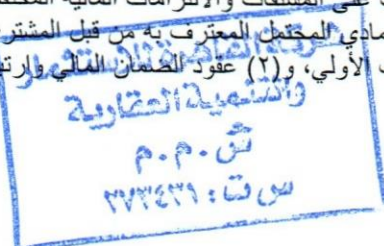 على المشتقات والالتزامات المالية
مادي المحتمل المعترف به من قبل المشتر
الأولي، و(٢) عقود الضمان المالي وارت
والتنمية العقارية
ش.م.م.
س ت: ٣٧٣٤٣١